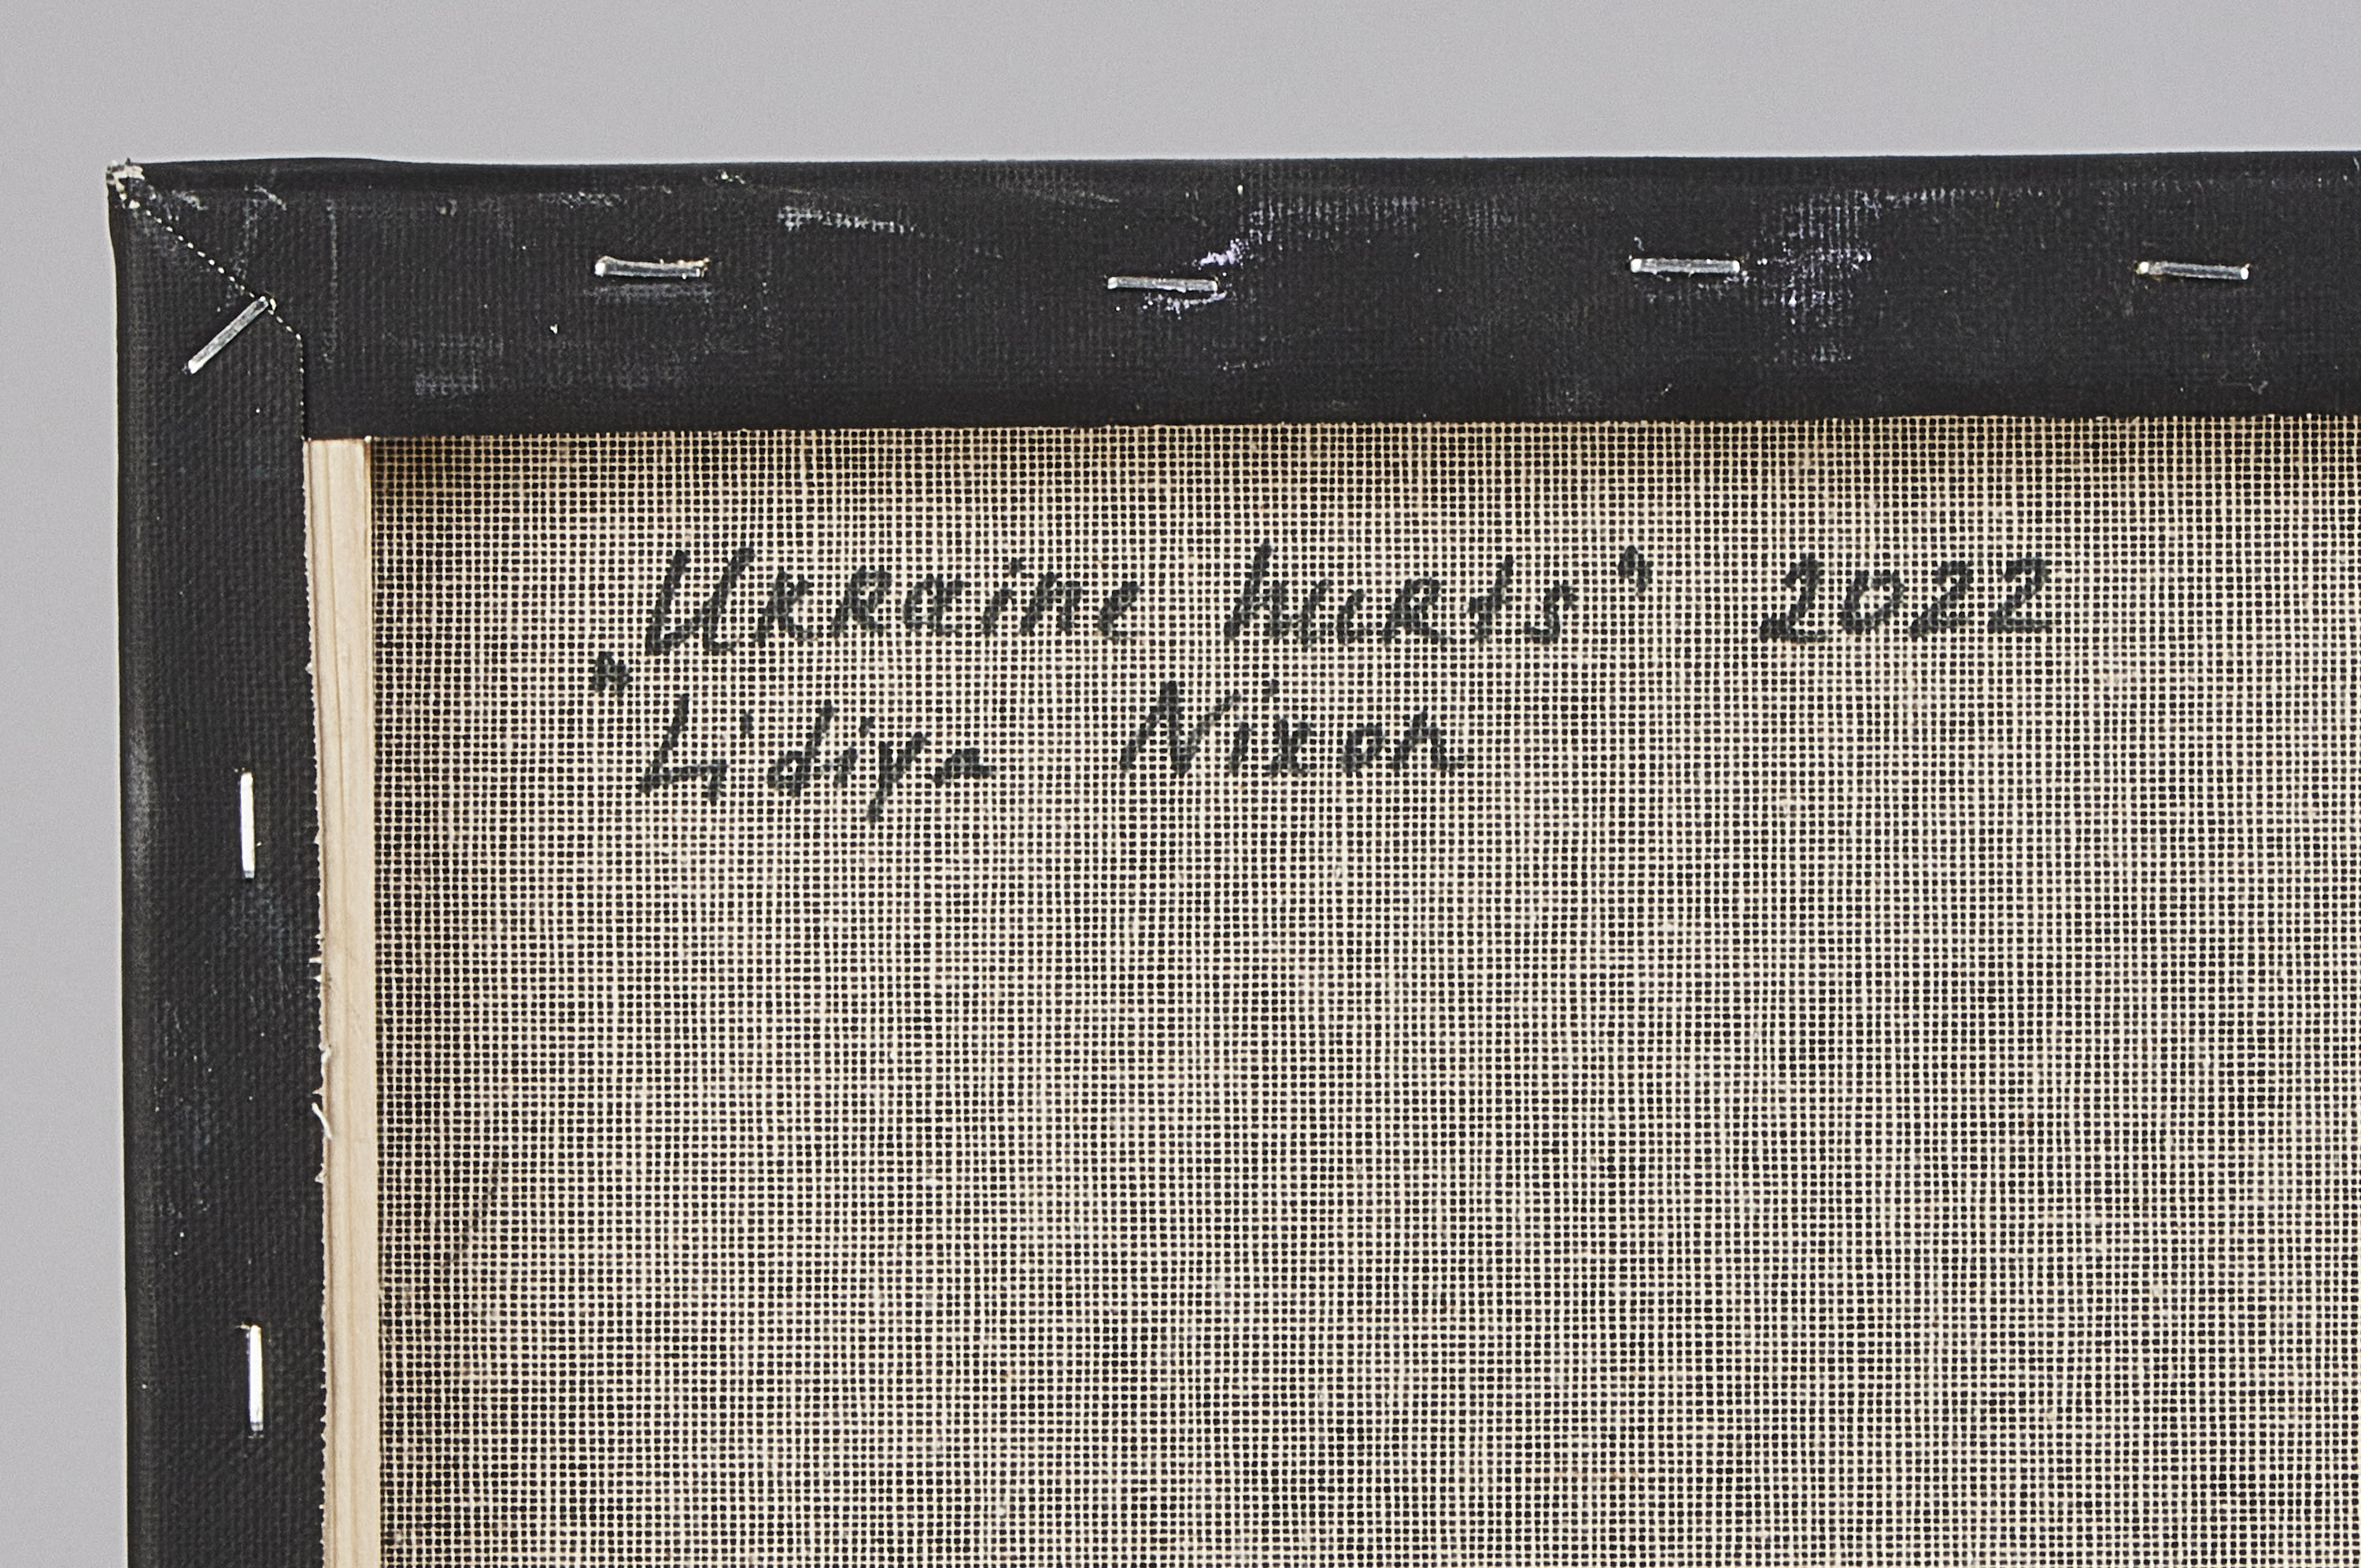 „Ukraine hurts” 2022
Lidiya Nixon